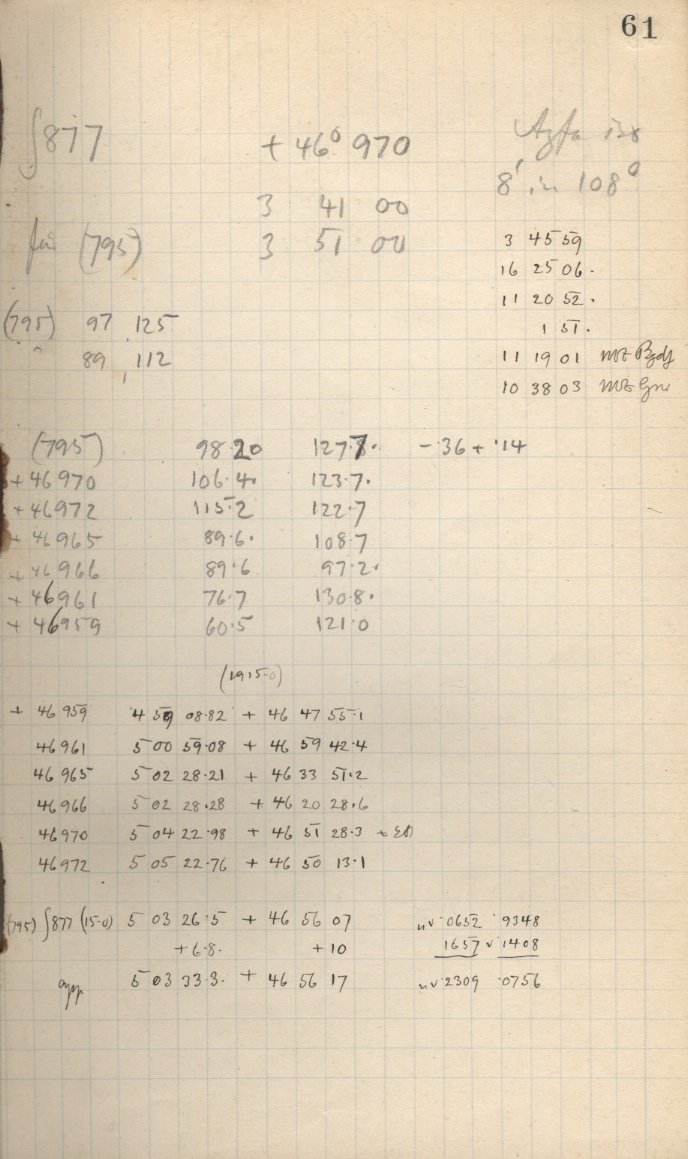 61
∫877 + 46° 970
Agfa iso
8' in 108°
3 41 00
für (795) 3 51 00
3 45 59
16 25 06.
11 20 52.
1 51.
11 19 01 MZ Bgdf
10 38 03 MZ Grw
(795) 97, 125
89, 112
(795) 98.20 127.7. -.36 + .14
+ 46 970 106.4. 123.7.
+ 46 972 115.2 122.7
+ 46 965 89.6. 108.7
+ 46 966 89.6 97.2.
+ 46 961 76.7 130.8.
+ 46 959 60.5 121.0
(1915.0)
+ 46 959 4 59 08.82 + 46 47 55.1
46 961 5 00 59.08 + 46 59 42.4
46 965 5 02 28.21 + 46 33 51.2
46 966 5 02 28.28 + 46 20 28.6
46 970 5 04 22.98 + 46 51 28.3 + EB
46 972 5 05 22.76 + 46 50 13.1
(795) ∫877 (15.0) 5 03 26.5 + 46 56 07 nv .0652 .9348
+6.8. +10 1657 v .1408
app. 5 03 33.3. + 46 56 17 nv .2309 .0756